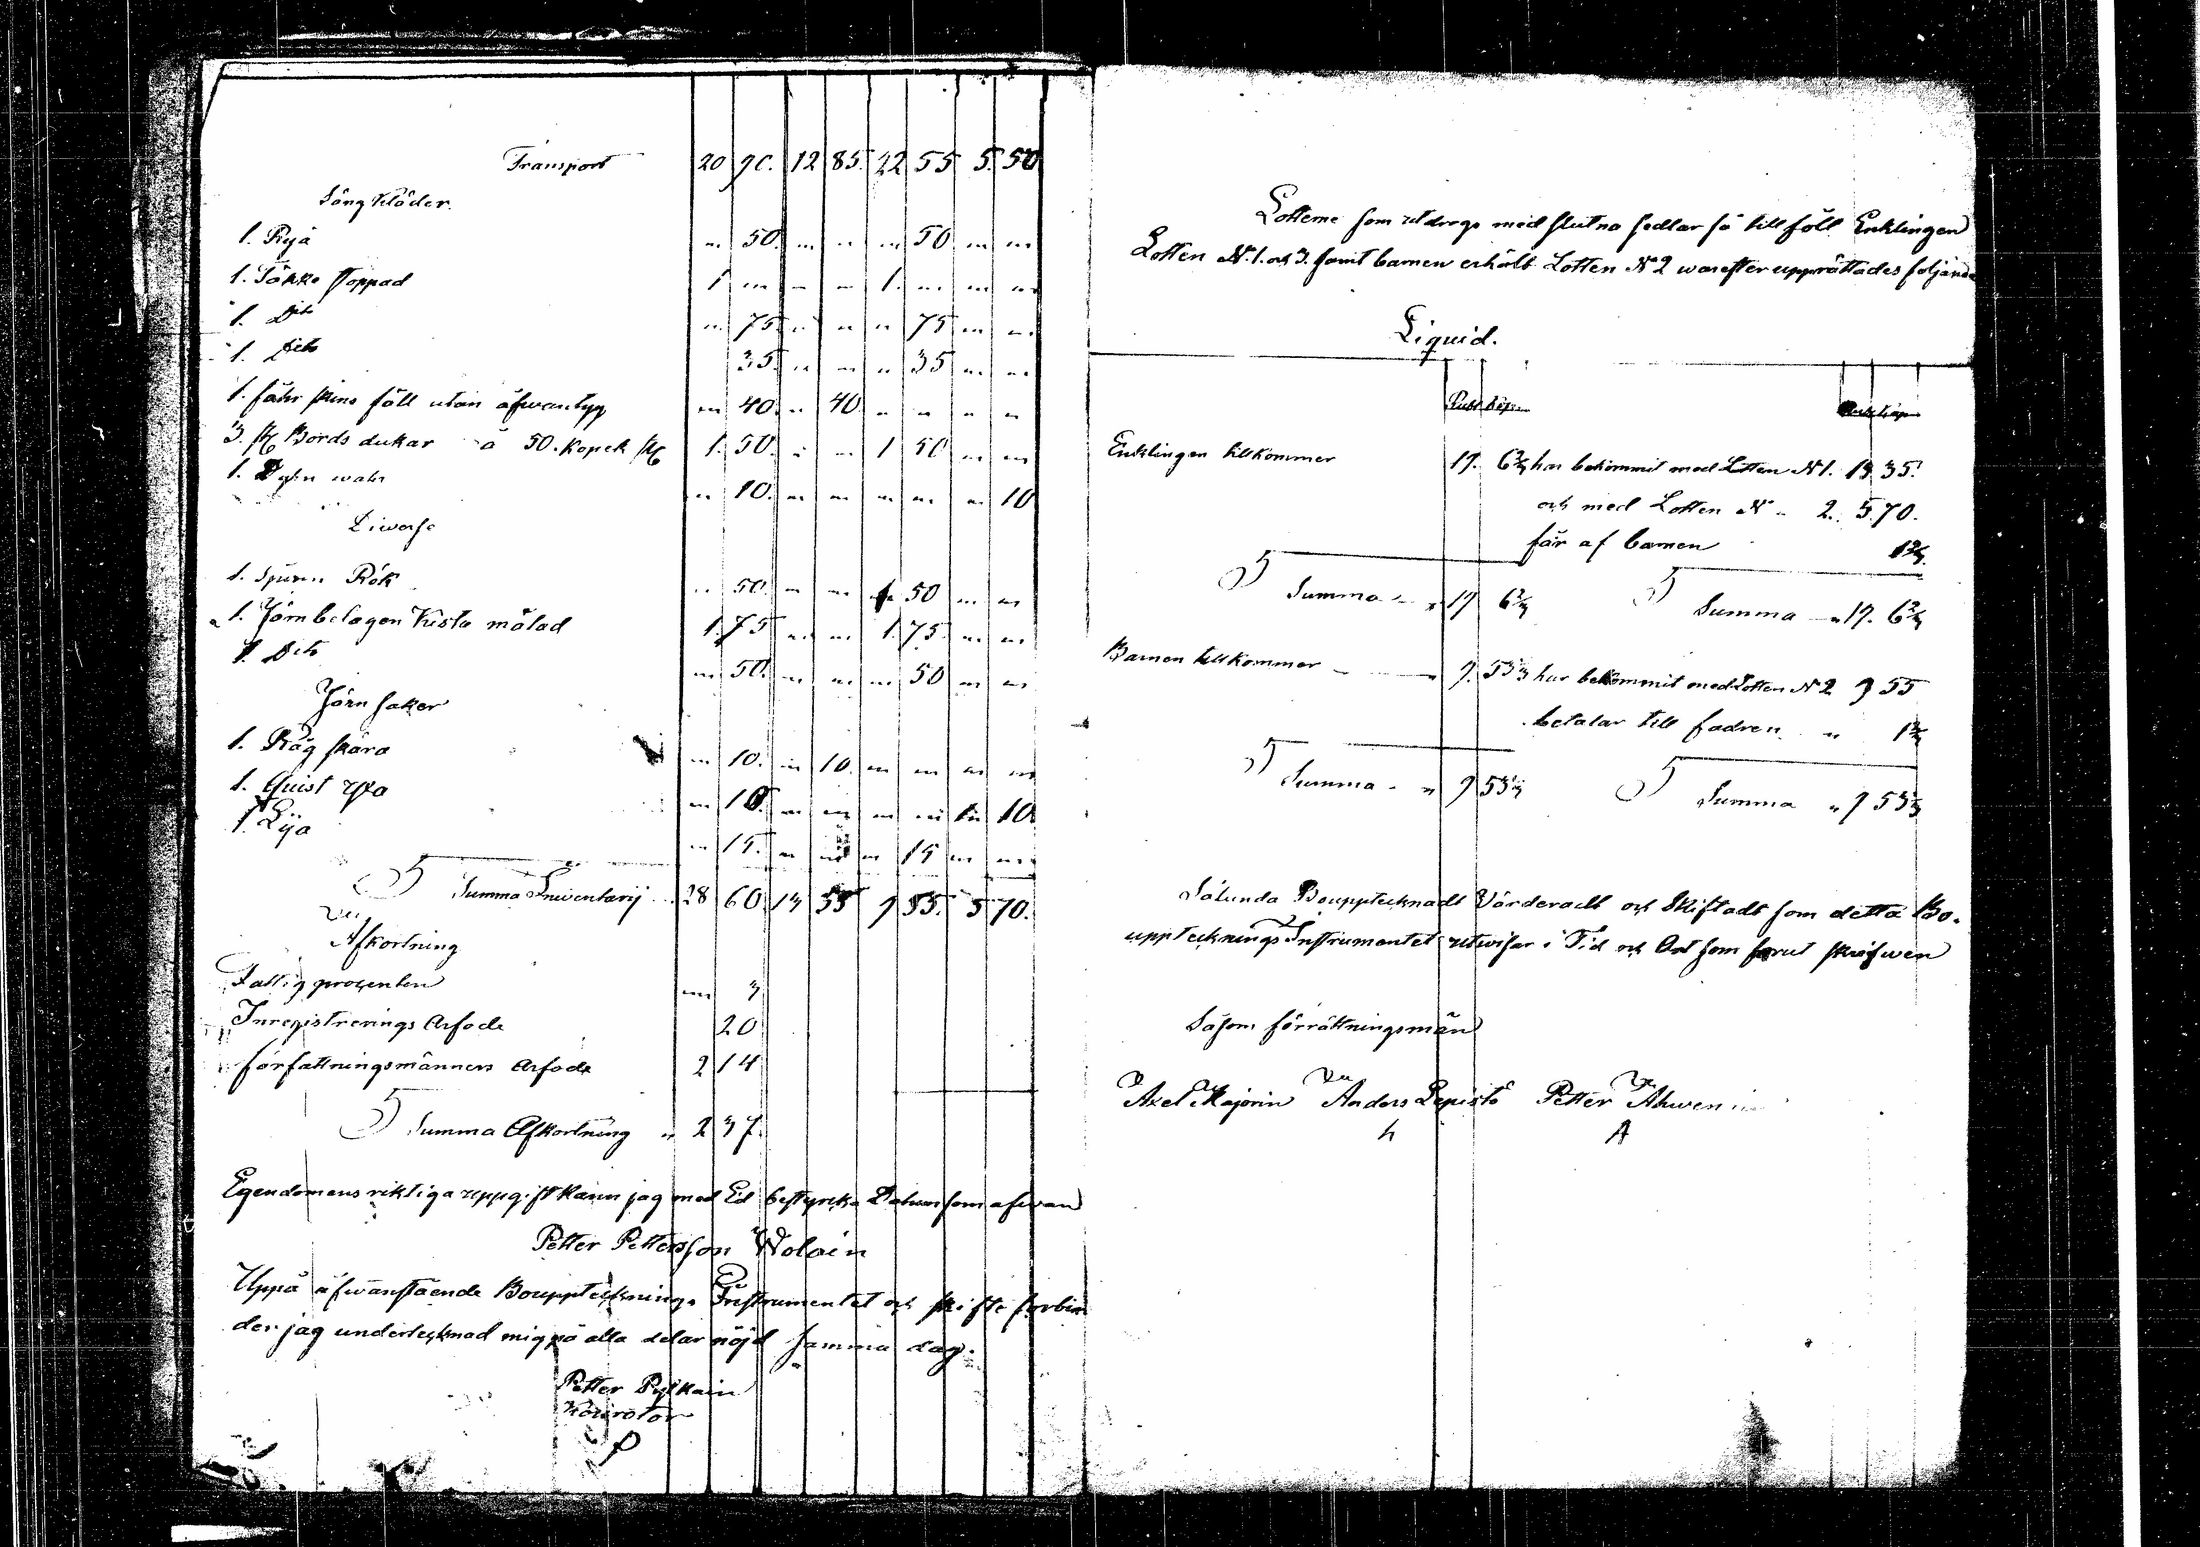 Transport 20 90. 12 85. 2 55 5. 50
Säng Kläder.
1. Ryä " 50. " " " 50 " "
1. Täkke stoppad 1 " " " 1. " " "
1. Dito " 75. " " " 75 " "
1. Dito 35. " " " 35 " "
1. fåhr skins fäll utan åfwantyg " 40. " 40. " " " "
3. st Bords dukar á 50. Kopek st 1. 50. " " 1 50 " "
1. Dyn wahr " 10. " " " " " 10
Diverse
1. Spinn Rok " 50. " " " 50 " "
1. Järnbelagen Kista målad 1. 75 " " 1. 75. " "
1. Dito " 50. " " " 50 " "
Järn saker
1. Råg skära " 10. " 10. " " " "
1. Quist yxa " 10. " " " " " 10.
1. Lija " 15. " " " 15 " "
Summa Inventarij 28 60. 13 35 9 55. 5 70.
Afkortning
Fattig procenten " 3
Inregistrerings Arfode 20
författningsmänners Arfode 2 14
Summa Afkortning " 2 37.
Egendomens riktiga uppgift kann jag med Ed bestyrka Datum som ofwan
Petter Pettersson Wolain
Uppå åfwanstående Bouppteknings Instrumentet och skifte forbin
der jag undertecknad mig på alla delar nöjd samma dag.
Petter Pylkain
Kourator
P
Lotterne som utdrogs med slutna sedlar så tillföll Enklingen
Lotten N. 1. och 3. samt barnen erhölt Lotten N 2 warefter upprättades foljande
Liquid.
Rub. kop. Rub. kop.
Enklingen tillkommer 19. 6 2/3 har bekommit med Lotten N 1. 13 35.
och med Lotten N " 2. 5. 70.
får af barnen 1 2/3
Summa " " 19 6 2/3 Summa " 19. 6 2/3
Barnen tillkommer " 9. 53 1/3 har bekommit med Lotten N 2 9 55
betalar till fadren " 1 2/3
Summa " " 9 53 1/3 Summa " 9 53 1/3
Sålunda Boupptecknadt Värderadt och Skiftadt som detta Bo-
upptecknings Instrumentet utwisar i Tid och Ort som forut skrifwen
Såsom förrättningsmän
Axel Majorin Anders Lepistö Petter Ahwen
h A